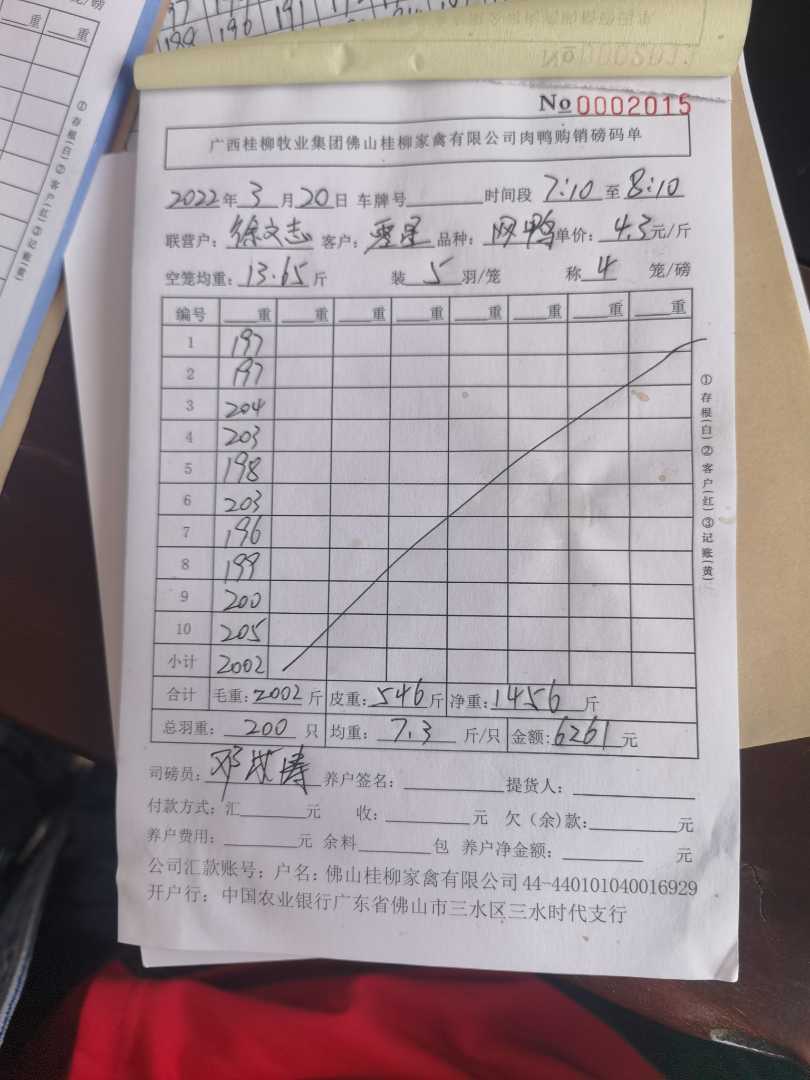 No 0002015
广西桂柳牧业集团佛山桂柳家禽有限公司肉鸭购销磅码单
2022年 3 月 20 日 车牌号 时间段 7:10 至 8:10
联营户: 徐文志 客户: 品种: 网鸭 单价: 4.3 元/斤
空笼均重: 13.65 斤 装 5 羽/笼 称 4 笼/磅
编号 重 重 重 重 重 重 重 重
1 197
2 197
3 204
4 203
5 198
6 203
7 196
8 199
9 200
10 205
小计 2002
合计 毛重: 2002 斤 皮重: 546 斤 净重: 1456 斤
总羽重: 200 只 均重: 7.3 斤/只 金额: 6261 元
司磅员: 养户签名: 提货人:
付款方式: 汇 元 收: 元 欠(余)款: 元
养户费用: 元 余料 包 养户净金额: 元
公司汇款账号: 户名: 佛山桂柳家禽有限公司 44-440101040016929
开户行: 中国农业银行广东省佛山市三水区三水时代支行
①存根(白)②客户(红)③记账(黄)
重 重
①存根(白)②客户(红)③记账(黄)
197 190 191
188